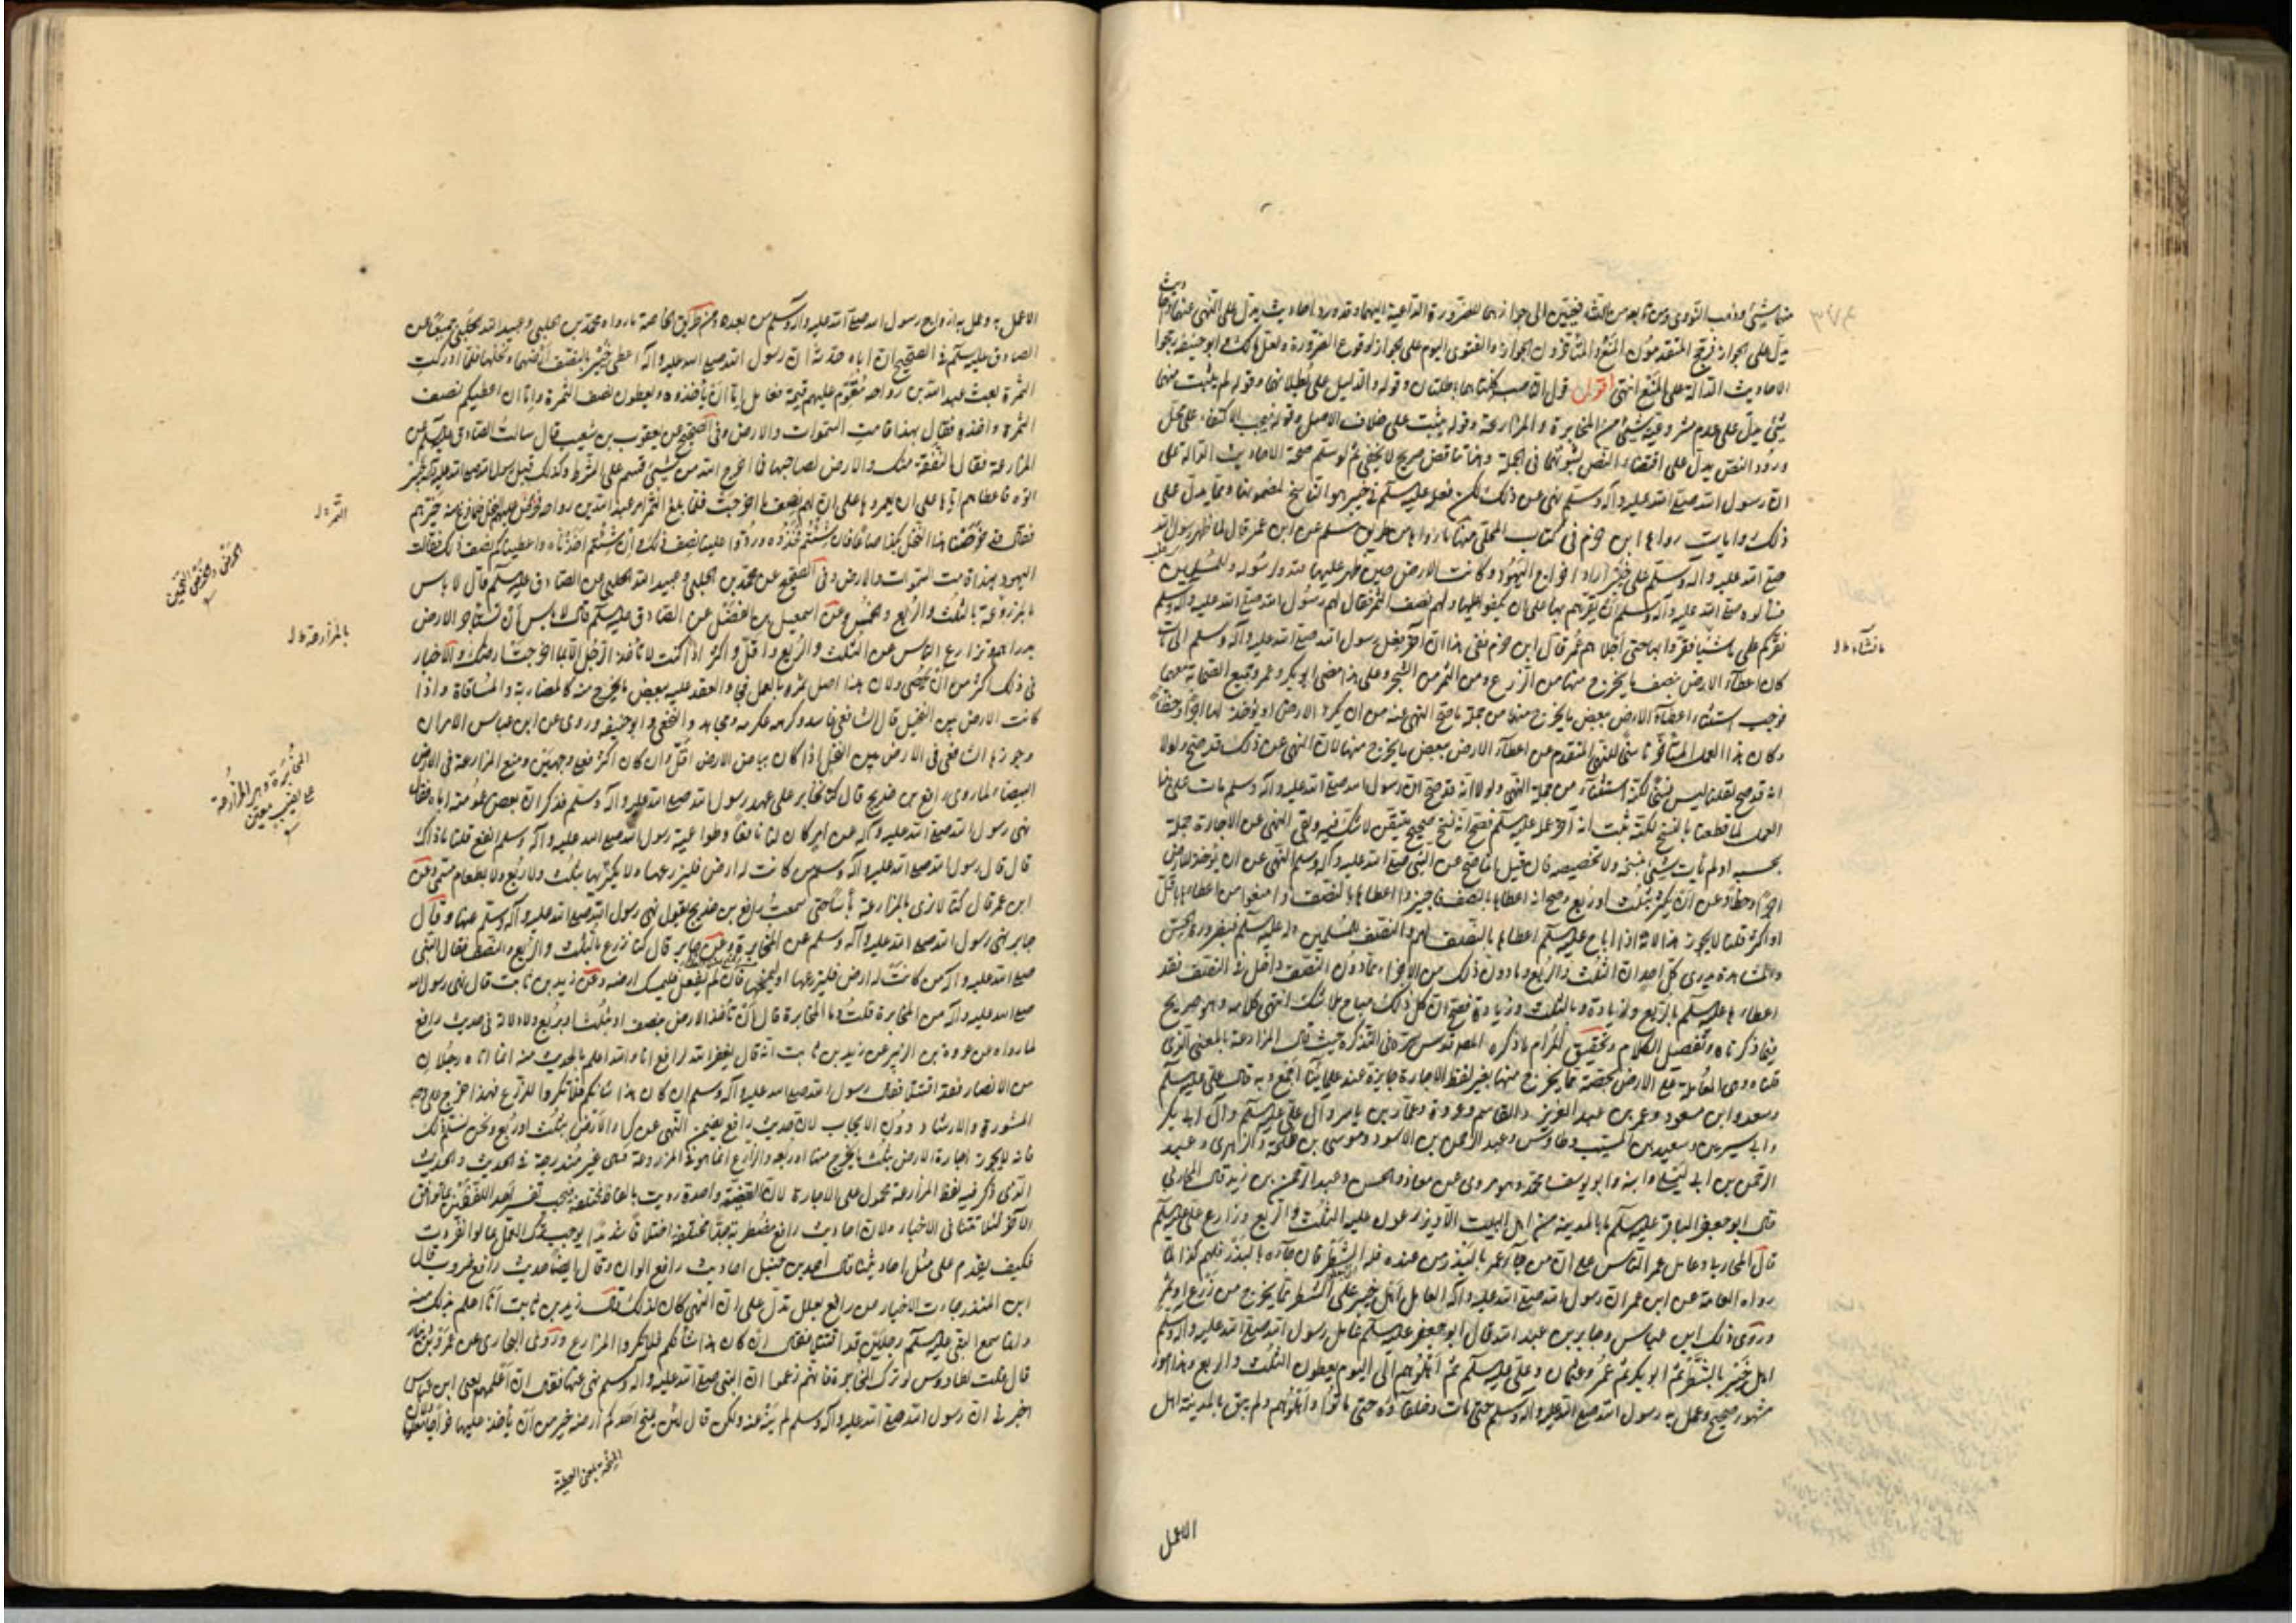 منهما شيء وذهب النووي ومن تابعه من الشافعيين الى جوازهما للضرورة الداعية اليهما وقد ورد احاديث يدل على النهي عنهما
يدل على الجواز فرجح المتقدمون المنع والمتاخرون الجواز والفتوى اليوم على الجواز لوقوع الضرورة ولعل مالك وابو حنيفة رجحوا
الاحاديث الدالة على المنع انتهى اقول قول الناصب كلتاهما باطلتان وقوله والدليل على بطلانهما وقوله لم يثبت منهما
شيء يدل على عدم مشروعية شيء من المخابرة والمزارعة وقوله يثبت على خلاف الاصل وقوله فيجب الاكتفاء على محل
ورود النص يدل على اقتضاء النص لثبوتهما في الجملة وهذا تناقض صريح لا يخفى ثم لو سلم صحة الاحاديث الدالة على
ان رسول الله صلى الله عليه وآله وسلم نهى عن ذلك لكن فعله عليه السلم في خيبر هو الناسخ لمضمونها ومما يدل على
ذلك روايات رواها ابن حزم في كتاب المحلى منها ما رواها من طريق مسلم عن ابن عمر قال لما ظهر رسول الله
صلى الله عليه وآله وسلم على خيبر اراد اخراج اليهود وكانت الارض حين ظهر عليها لله ولرسوله وللمسلمين
فسألوه صلى الله عليه وآله وسلم ان يقرهم بها على ان يكفوا عملها ولهم نصف الثمر فقال لهم رسول الله صلى الله عليه وآله وسلم
نقركم على ما شئنا فقروا بها حتى اجلاهم عمر قال ابن حزم ففي هذا ان آخر فعل رسول الله صلى الله عليه وآله وسلم الى ان مات
كان اعطاء الارض بنصف ما يخرج منها من الزرع ومن الثمر من الشجر وعلى هذا مضى ابو بكر وعمر وجميع الصحابة معهما
فوجب استثناء اعطاء الارض ببعض ما يخرج منها من جملة ما صح النهي عنه من ان يكرى الارض او يؤخذ لها اجر او حظ
وكان هذا العمل المتأخر ناسخا للنهي المتقدم عن اعطاء الارض ببعض ما يخرج منها لان النهي عن ذلك قد صح ولولا
انه قد صح لقلنا ليس نسخا لكنه استثناء من جملة النهي ولولا انه قد صح ان رسول الله صلى الله عليه وآله وسلم مات على هذا
العمل لما قطعنا بالنسخ لكنه ثبت انه آخر عمله عليه السلم فصح انه نسخ صحيح متيقن لا شك فيه وبقي النهي عن الاجارة جملة
بحسبه اذ لم يأت شيء ينسخه ولا تخصيصه فان قيل انما صح عن النبي صلى الله عليه وآله وسلم النهي عن ان يؤخذ للارض
اجرا وحظ وعن ان يكرى بثلث او ربع وصح انه اعطاها بالنصف فاجيزوا اعطاءها بالنصف وامنعوا من اعطائها باقل
او اكثر قلنا لا يجوز هذا لانه اذا اباح عليه السلم اعطاءها بالنصف لهم والنصف للمسلمين وله عليه السلم فبضرورة الحس
والمشاهدة يدري كل احد ان الثلث والربع وما دون ذلك من الاجزاء مما دون النصف داخل في النصف فقد
اعطاها عليه السلم بالربع وزيادة وبالثلث وزيادة فصح ان كل ذلك مباح بلا شك انتهى كلامه وهو صريح
فيما ذكرناه وتفصيل الكلام وتحقيق المرام ما ذكره المصنف قدس سره في التذكرة حيث قال المزارعة بالمعنى الذي
قلناه وهي المعاملة على الارض بحصة مما يخرج منها بغير لفظ الاجارة جايزة عند علمائنا اجمع وبه قال علي عليه السلم
وسعد وابن مسعود وعمر بن عبد العزيز والقاسم وعروة وعمار بن ياسر وآل علي عليه السلم وآل ابي بكر
وابن سيرين وسعيد بن المسيب وطاوس وعبد الرحمن بن الاسود وموسى بن طلحة والزهري وعبد
الرحمن بن ابي ليلى وابنه وابو يوسف ومحمد وهو مروي عن معاذ والحسن وعبد الرحمن بن زيد قال البخاري
قال ابو جعفر الباقر عليه السلم ما بالمدينة من اهل البيت الا ويزارعون على الثلث والربع وزارع علي عليه السلم
قال البخاري وعامل عمر الناس على ان من جاء عمر بالبذر من عنده فله الشطر فان جاؤه بالبذر فلهم كذا لما
رواه العامة عن ابن عمر ان رسول الله صلى الله عليه وآله عامل اهل خيبر على الشطر مما يخرج من زرع او ثمر
وروى ذلك ابن عباس وجابر بن عبد الله قال ابو جعفر عليه السلم عامل رسول الله صلى الله عليه وآله وسلم
اهل خيبر بالشطر ثم ابو بكر ثم عمر وعثمان وعلي عليه السلم ثم اهلوهم الى اليوم يعطون الثلث والربع وهذا امر
مشهور صحيح وعمل به رسول الله صلى الله عليه وآله وسلم حتى مات وخلفاؤه حتى ماتوا واهلوهم ولم يبق بالمدينة اهل
الا عمل
الا عمل به وعمل به ازواج رسول الله صلى الله عليه وآله وسلم من بعده ومن طريق الخاصة ما رواه محمد بن الحلبي وعبيد الله الحلبي جميعا عن
الصادق عليه السلم في الصحيح ان اباه حدثه ان رسول الله صلى الله عليه وآله اعطى خيبر بالنصف ارضها ونخلها فلما ادركت
الثمرة بعث عبد الله بن رواحة فقوم عليهم قيمة فقال اما ان تأخذوه وتعطون نصف الثمرة واما ان اعطيكم نصف
الثمرة وآخذه فقال بهذا قامت السموات والارض وفي الصحيح عن يعقوب بن شعيب قال سالت الصادق عليه السلم عن
المزارعة فقال النفقة منك والارض لصاحبها فما اخرج الله من شيء قسم على الشرط وكذلك قبل رسول الله صلى الله عليه وآله خيبر
اتوه فاعطاهم اياها على ان يعمروها على ان لهم نصف ما اخرجت فلما بلغ الثمر امر عبد الله بن رواحة فخرص عليهم النخل فلما فرغ منه خيرهم
فقال قد خرصنا هذا النخل بكذا صاعا فان شئتم فخذوه وردوا علينا نصف ذلك وان شئتم اخذناه واعطيناكم نصف ذلك فقالت
اليهود بهذا قامت السموات والارض وفي الصحيح عن محمد بن الحلبي وعبيد الله الحلبي عن الصادق عليه السلم قال لا باس
بالمزارعة بالثلث والربع والخمس وعن اسمعيل بن الفضل عن الصادق عليه السلم قال لا باس ان تستاجر الارض
بدراهم وتزارع الناس على الثلث والربع واقل واكثر اذا كنت لا تأخذ الرجل الا بما اخرجت ارضك والاخبار
في ذلك اكثر من ان تحصى ولان هذا اصل ثمره بالعمل فيه والعقد عليه ببعض ما يخرج منه كالمضاربة والمساقاة واذا
كانت الارض بين النخيل قال الشافعي فاسد وكرهه عكرمة ومجاهد والنخعي وابو حنيفة وروي عن ابن عباس الامران
وجوزها الشافعي في الارض بين النخل اذا كان بياض الارض اقل وان كان اكثر فعلى وجهين ومنع المزارعة في الارض
البيضاء لما روى رافع بن خديج قال كنا نخابر على عهد رسول الله صلى الله عليه وآله وسلم فذكر ان بعض عمومته اتاه فقال
نهى رسول الله صلى الله عليه وآله عن امر كان لنا نافعا وطواعية رسول الله صلى الله عليه وآله وسلم انفع قلنا ما ذاك
قال قال رسول الله صلى الله عليه وآله وسلم من كانت له ارض فليزرعها ولا يكريها بثلث ولا ربع ولا بطعام مسمى وعن
ابن عمر قال كنا لا نرى بالمزارعة بأسا حتى سمعت رافع بن خديج يقول نهى رسول الله صلى الله عليه وآله وسلم عنها وقال
جابر نهى رسول الله صلى الله عليه وآله وسلم عن المخابرة وعن جابر قال كنا نزرع بالثلث والربع والنصف فقال النبي
صلى الله عليه وآله من كانت له ارض فليزرعها او ليمنحها فان لم يفعل فليمسك ارضه وعن زيد بن ثابت قال نهى رسول الله
صلى الله عليه وآله عن المخابرة قلت وما المخابرة قال ان تأخذ الارض بنصف او ثلث او بربع ولا دلالة في حديث رافع
لما رواه عن عروة بن الزبير عن زيد بن ثابت انه قال يغفر الله لرافع انا والله اعلم بالحديث منه انما اتاه رجلان
من الانصار فقد اقتتلا فقال رسول الله صلى الله عليه وآله وسلم ان كان هذا شانكم فلا تكروا المزارع فهذا خرج على وجه
المشورة والارشاد دون الايجاب لان حديث رافع يضمن النهي عن كراء الارض بثلث او ربع ونحن نسلم ذلك
فانه لا يجوز اجارة الارض بثلث ما يخرج منها او ربعه والنزاع انما هو في المزارعة فهي غير مندرجة في الحديث والحديث
الذي ذكر فيه لفظ المزارعة محمول على الاجارة لان القضية واحدة رويت بالفاظ مختلفة فيجب تفسير احد اللفظين بما يوافق
الآخر لئلا تتنافى الاخبار ولان احاديث رافع مضطربة جدا مختلفة اختلافا شديدا يوجب ترك العمل بها لو انفردت
فكيف يقدم على مثل احاديثنا قال احمد بن حنبل احاديث رافع الوان وقال ايضا حديث رافع ضروب قال
ابن المنذر جاءت الاخبار عن رافع بعلل تدل على ان النهي كان لذلك وقد زيد بن ثابت انا اعلم بذلك منه
وانما سمع النبي عليه السلم رجلين قد اقتتلا فقال ان كان هذا شأنكم فلا تكروا المزارع وروى البخاري عن عمرو بن دينار
قال قلت لطاووس لو تركت المخابرة فانهم زعموا ان النبي صلى الله عليه وآله وسلم نهى عنها فقال ان اعلمهم يعني ابن عباس
اخبرني ان رسول الله صلى الله عليه وآله وسلم لم ينه عنه ولكن قال لئن يمنح احدكم ارضه خير من ان يأخذ عليها خراجا معلوما
الخرص التخمين
بالمزارعة
المخابرة وهي المزارعة
على نصيب معين
المنحة بمعنى العطية